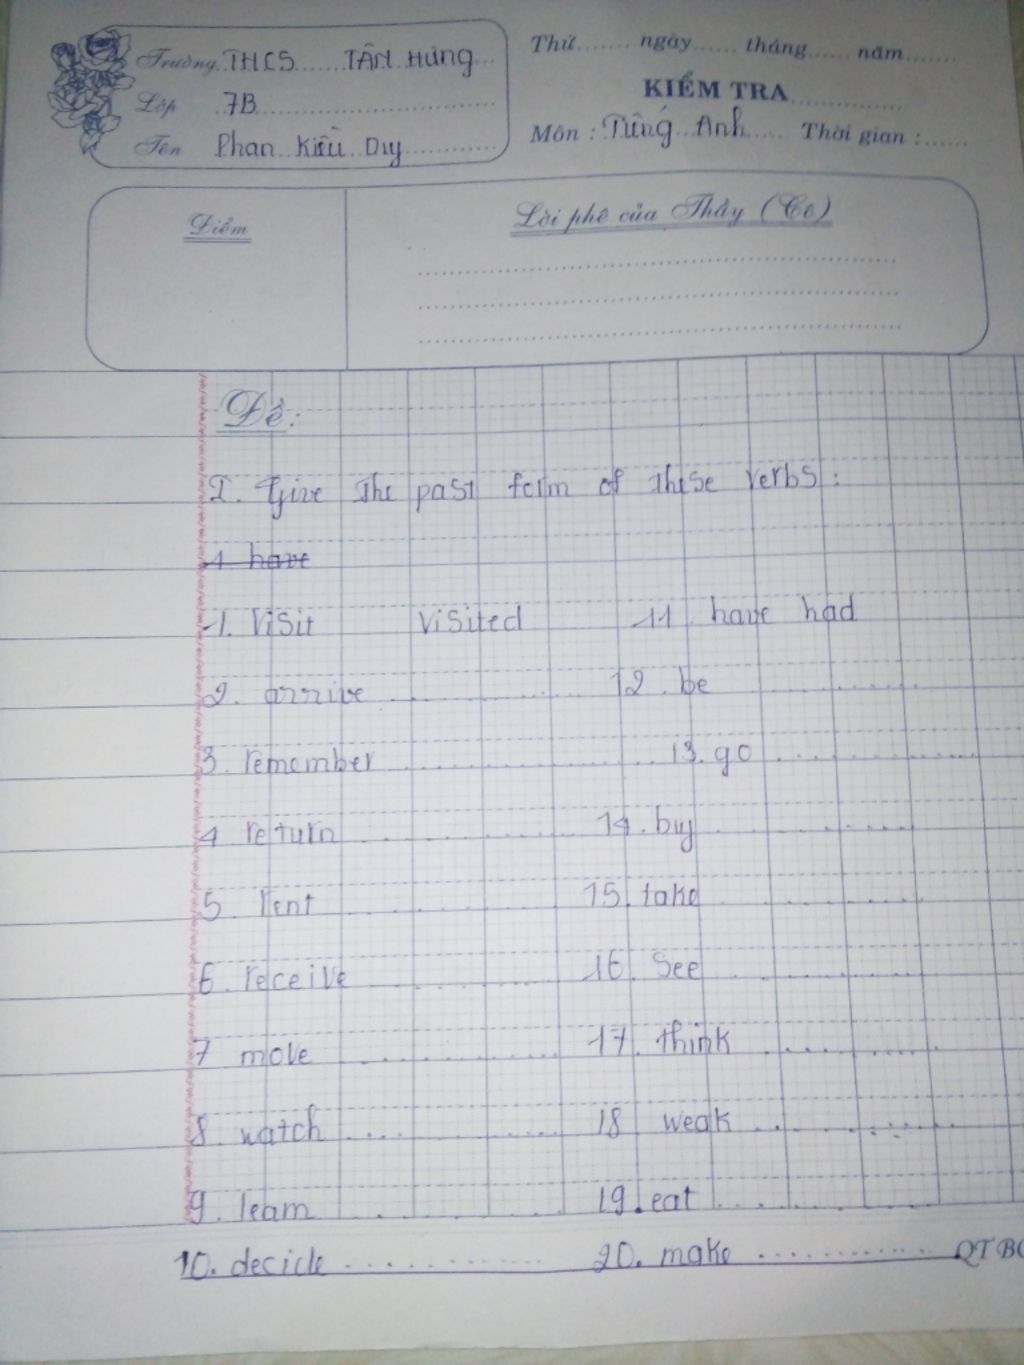 Trường THCS TÂN Hưng
Lớp 7B
Tên Phan Kiều Duy
Thứ ngày tháng năm
KIỂM TRA
Môn : Tiếng Anh Thời gian :
Điểm
Lời phê của Thầy (Cô)
Đề:
I. Give the past form of these verbs :
1 have
1. Visit Visited 11 have had
2. arrive 12. be
3. remember 13. go
4 return 14. buy
5. rent 15. take
6. receive 16. See
7 move 17. think
8. watch 18 weak
9. learn 19. eat
10. decide 20. make